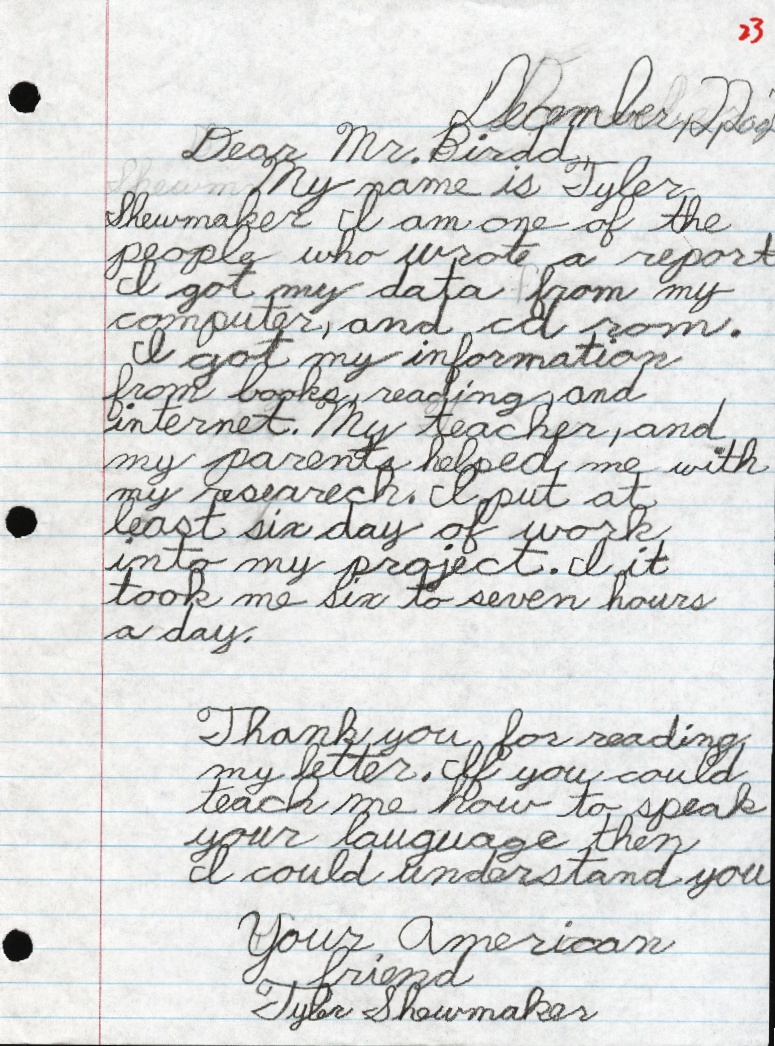 23
December, 2, 200
Dear Mr. Birdd,
My name is Tyler
Shewmaker I am one of the
people who wrote a report
I got my data from my
computer, and cd rom.
I got my information
from books, reading, and
internet. My teacher, and
my parents helped me with
my researech. I put at
least six day of work
into my project. I it
took me six to seven hours
a day.
Thank you for reading
my letter. If you could
teach me how to speak
your lauguage then
I could understand you
Your American
friend
Tyler Shewmaker